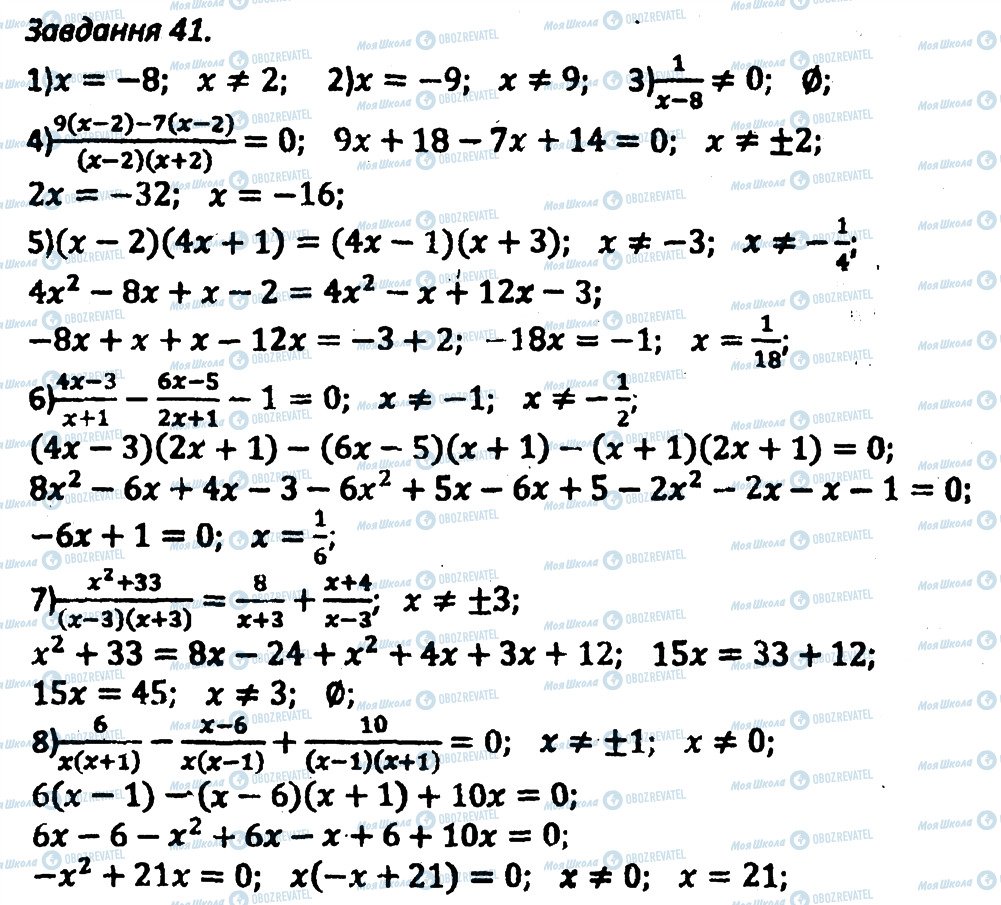 Завдання 41.
1)x = −8; x ≠ 2; 2)x = −9; x ≠ 9; 3)1/(x−8) ≠ 0; Ø;
4)(9(x−2)−7(x−2))/((x−2)(x+2)) = 0; 9x + 18 − 7x + 14 = 0; x ≠ ±2;
2x = −32; x = −16;
5)(x − 2)(4x + 1) = (4x − 1)(x + 3); x ≠ −3; x ≠ −1/4;
4x² − 8x + x − 2 = 4x² − x + 12x − 3;
−8x + x + x − 12x = −3 + 2; −18x = −1; x = 1/18;
6)(4x−3)/(x+1) − (6x−5)/(2x+1) − 1 = 0; x ≠ −1; x ≠ −1/2;
(4x − 3)(2x + 1) − (6x − 5)(x + 1) − (x + 1)(2x + 1) = 0;
8x² − 6x + 4x − 3 − 6x² + 5x − 6x + 5 − 2x² − 2x − x − 1 = 0;
−6x + 1 = 0; x = 1/6;
7)(x²+33)/((x−3)(x+3)) = 8/(x+3) + (x+4)/(x−3); x ≠ ±3;
x² + 33 = 8x − 24 + x² + 4x + 3x + 12; 15x = 33 + 12;
15x = 45; x ≠ 3; Ø;
8)6/(x(x+1)) − (x−6)/(x(x−1)) + 10/((x−1)(x+1)) = 0; x ≠ ±1; x ≠ 0;
6(x − 1) − (x − 6)(x + 1) + 10x = 0;
6x − 6 − x² + 6x − x + 6 + 10x = 0;
−x² + 21x = 0; x(−x + 21) = 0; x ≠ 0; x = 21;